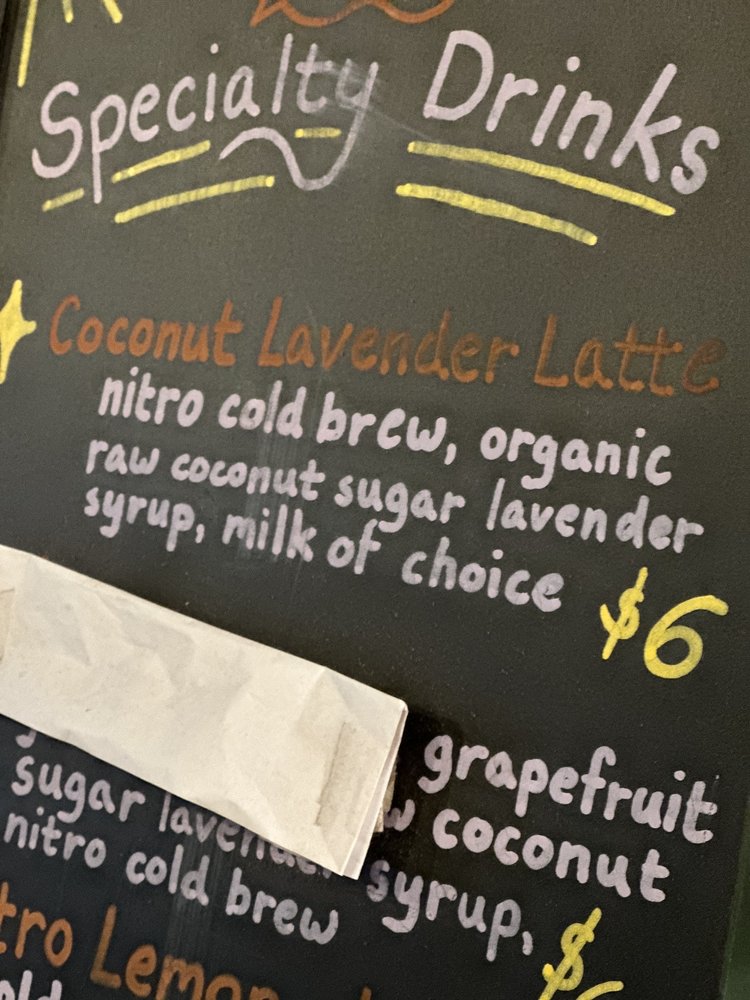 Specialty Drinks
Coconut Lavender Latte
nitro cold brew, organic
raw coconut sugar lavender
syrup, milk of choice
$6
grapefruit
coconut
sugar lavender syrup,
nitro cold brew
$